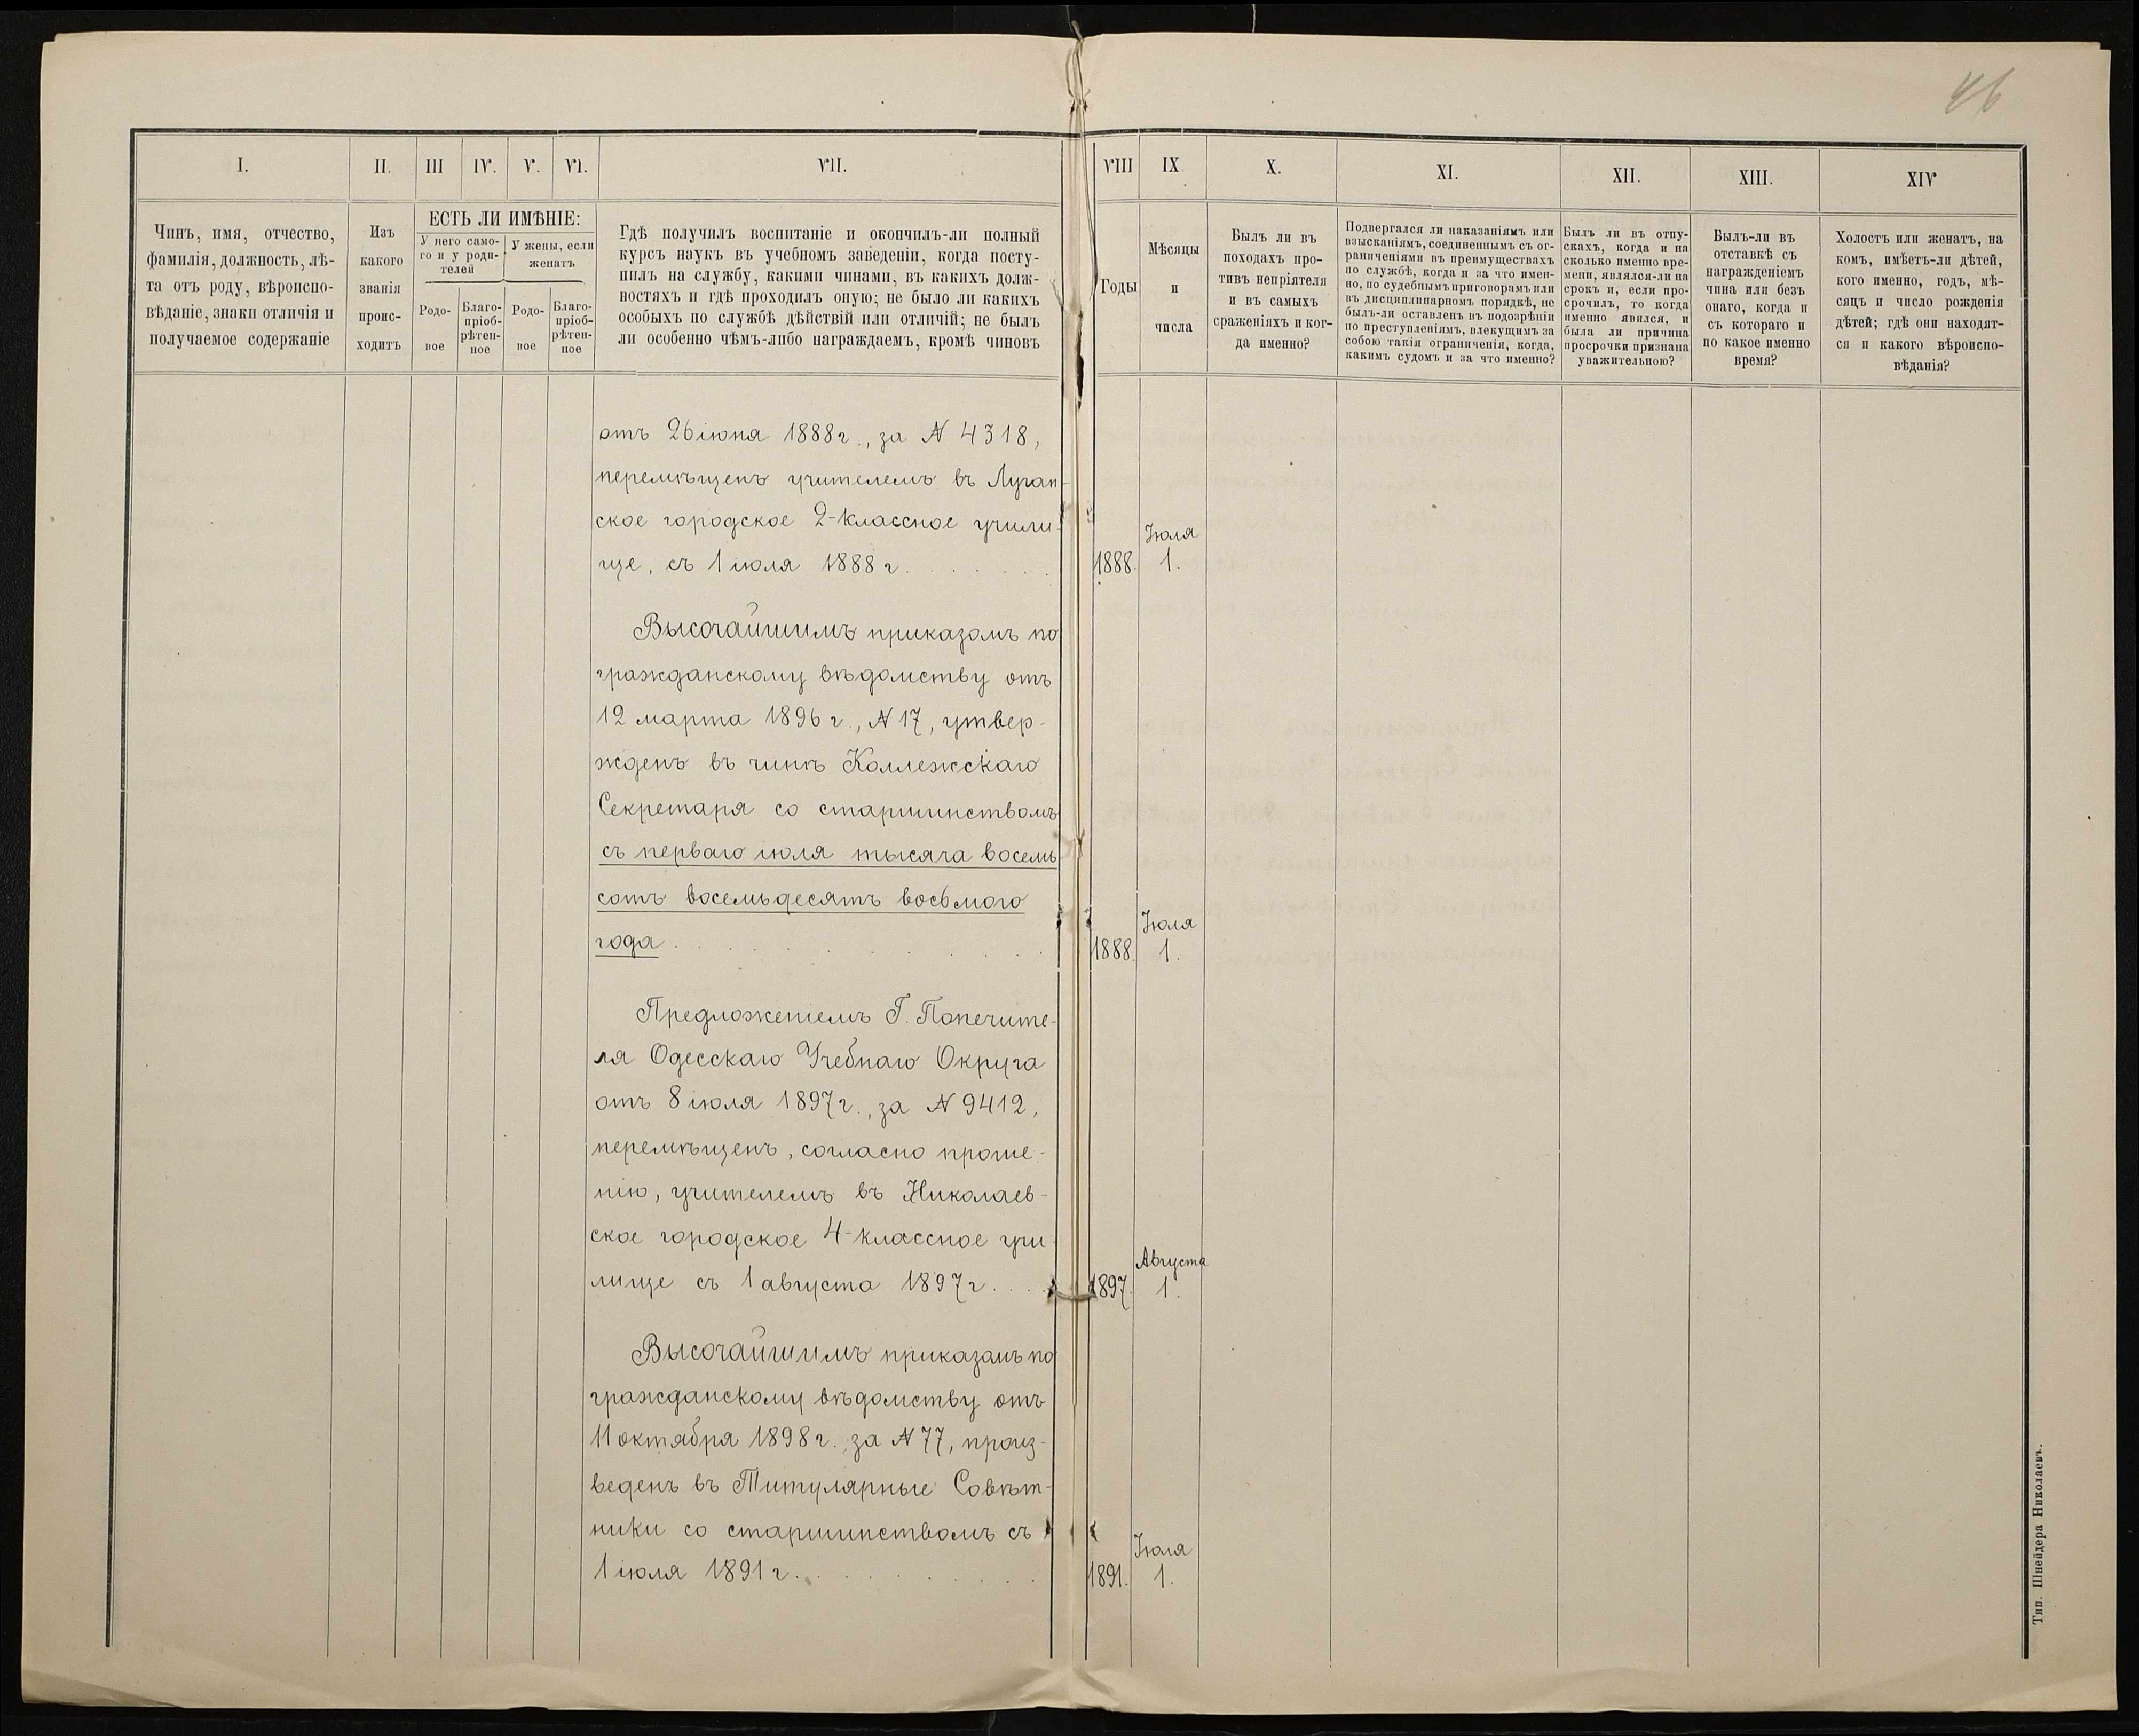 46
I.
II.
III
IV.
V.
VI.
VII.
VIII
IX
X.
XI.
XII.
XIII.
XIV
Чинъ, имя, отчество,
фамилія, должность, лѣ-
та отъ роду, вѣроиспо-
вѣданіе, знаки отличія и
получаемое содержаніе
Изъ
какого
званія
проис-
ходитъ
ЕСТЬ ЛИ ИМѢНІЕ:
У него само-
го и у роди-
телей
У жены, если
женатъ
Родо-
вое
Благо-
пріоб-
рѣтен-
ное
Родо-
вое
Благо-
пріоб-
рѣтен-
ное
Гдѣ получилъ воспитаніе и окончилъ-ли полный
курсъ наукъ въ учебномъ заведеніи, когда посту-
пилъ на службу, какими чинами, въ какихъ долж-
ностяхъ и гдѣ проходилъ оную; не было ли какихъ
особыхъ по службѣ дѣйствій или отличій; не былъ
ли особенно чѣмъ-либо награждаемъ, кромѣ чиновъ
Годы
Мѣсяцы
и
числа
Былъ ли въ
походахъ про-
тивъ непріятеля
и въ самыхъ
сраженіяхъ и ког-
да именно?
Подвергался ли наказаніямъ или
взысканіямъ, соединеннымъ съ ог-
раниченіями въ преимуществахъ
по службѣ, когда и за что имен-
но, по судебнымъ приговорамъ или
въ дисциплинарномъ порядкѣ, не
былъ-ли оставленъ въ подозрѣніи
по преступленіямъ, влекущимъ за
собою такія ограниченія, когда,
какимъ судомъ и за что именно?
Былъ ли въ отпу-
скахъ, когда и на
сколько именно вре-
мени, являлся-ли на
срокъ и, если про-
срочилъ, то когда
именно явился, и
была ли причина
просрочки признана
уважительною?
Былъ-ли въ
отставкѣ съ
награжденіемъ
чина или безъ
онаго, когда и
съ котораго и
по какое именно
время?
Холостъ или женатъ, на
комъ, имѣетъ-ли дѣтей,
кого именно, годъ, мѣ-
сяцъ и число рожденія
дѣтей; гдѣ они находят-
ся и какого вѣроиспо-
вѣданія?
отъ 26 іюня 1888 г., за № 4318,
перемѣщенъ учителемъ въ Луган-
ское городское 2-классное учили-
ще, съ 1 іюля 1888 г. . . . . . .
1888.
Іюля
1.
Высочайшимъ приказомъ по
гражданскому вѣдомству отъ
12 марта 1896 г., № 17, утвер-
жденъ въ чинѣ Коллежскаго
Секретаря со старшинствомъ
съ перваго іюля тысяча восемь-
сотъ восемьдесятъ восьмого
года . . . . . . . . . .
1888.
Іюля
1.
Предложеніемъ Г. Попечите-
ля Одесскаго Учебнаго Округа
отъ 8 іюля 1897 г., за № 9412,
перемѣщенъ, согласно проше-
нію, учителемъ въ Николаев-
ское городское 4-классное учи-
лище съ 1 августа 1897 г. . . .
1897.
Августа
1.
Высочайшимъ приказомъ по
гражданскому вѣдомству отъ
11 октября 1898 г., за № 77, произ-
веденъ въ Титулярные Совѣт-
ники со старшинствомъ съ
1 іюля 1891 г. . . . . . . . .
1891.
Іюля
1.
Тип. Шнейдера Николаевъ.